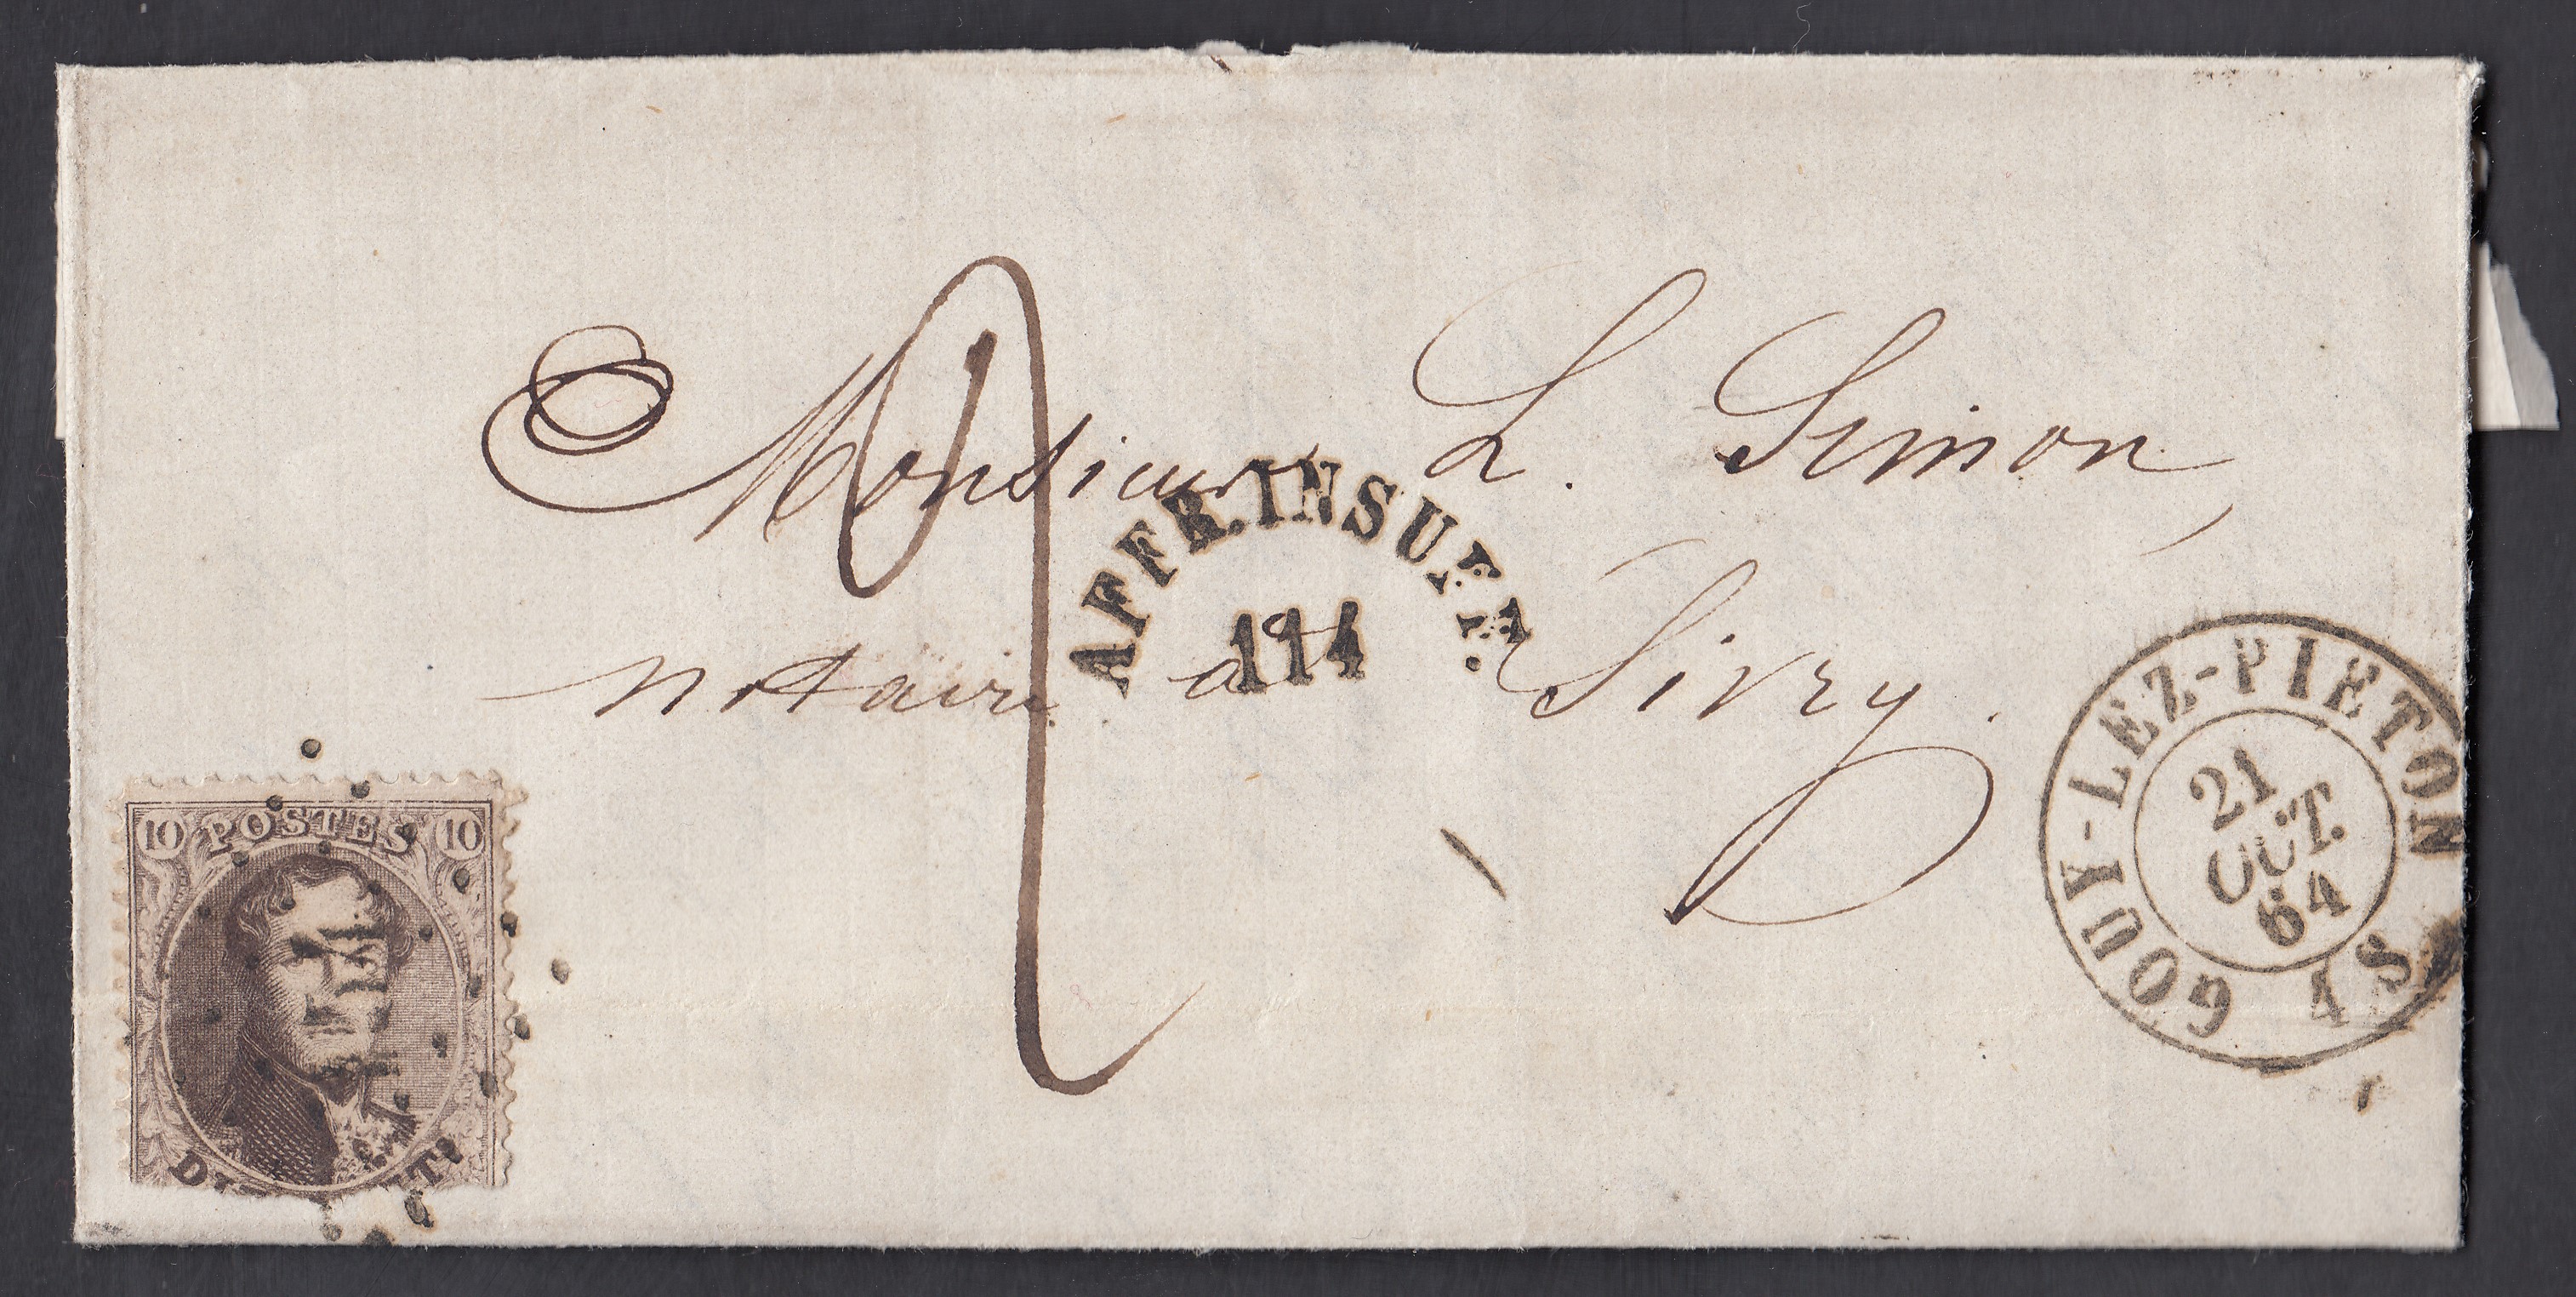 Monsieur L. Simon,
AFFR. INSUFF.
114
notaire à Sivry.
GOUY-LEZ-PIETON
21
OCT.
64
4 S
10 POSTES 10